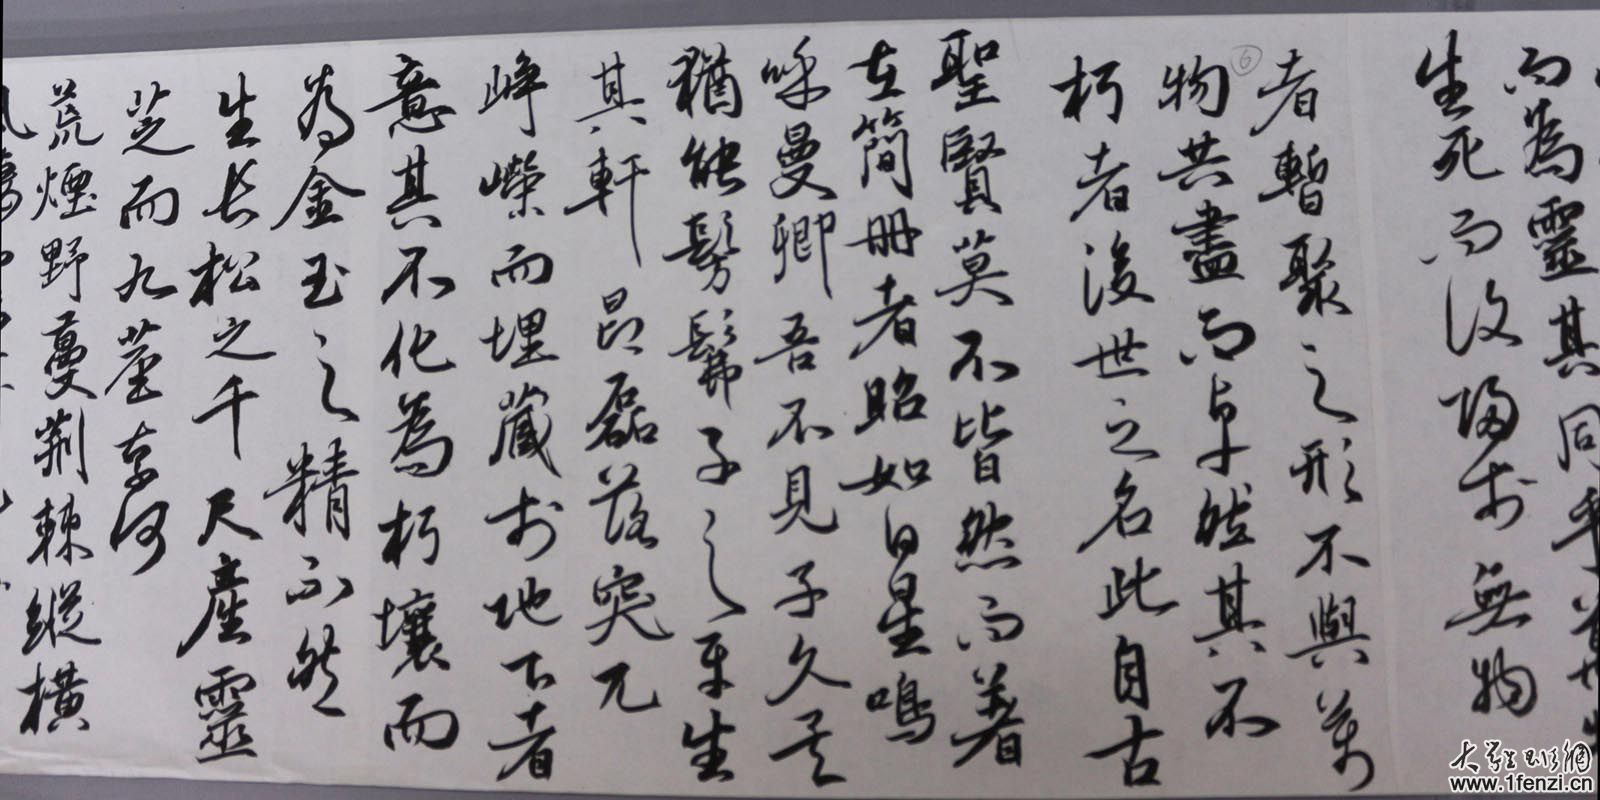 而為靈其同乎萬物
生死而復歸於無物
者暫聚之形不與萬
物共盡而卓然其不
朽者後世之名此自古
聖賢莫不皆然而著
在簡冊者昭如日星嗚
呼曼卿吾不見子久矣
猶能髣髴子之平生
其軒昂磊落突兀
崢嶸而埋藏於地下者
意其不化為朽壤而
為金玉之精不然
生長松之千尺產靈
芝而九莖奈何
荒煙野蔓荆棘縱橫
風
6
www.1fenzi.cn